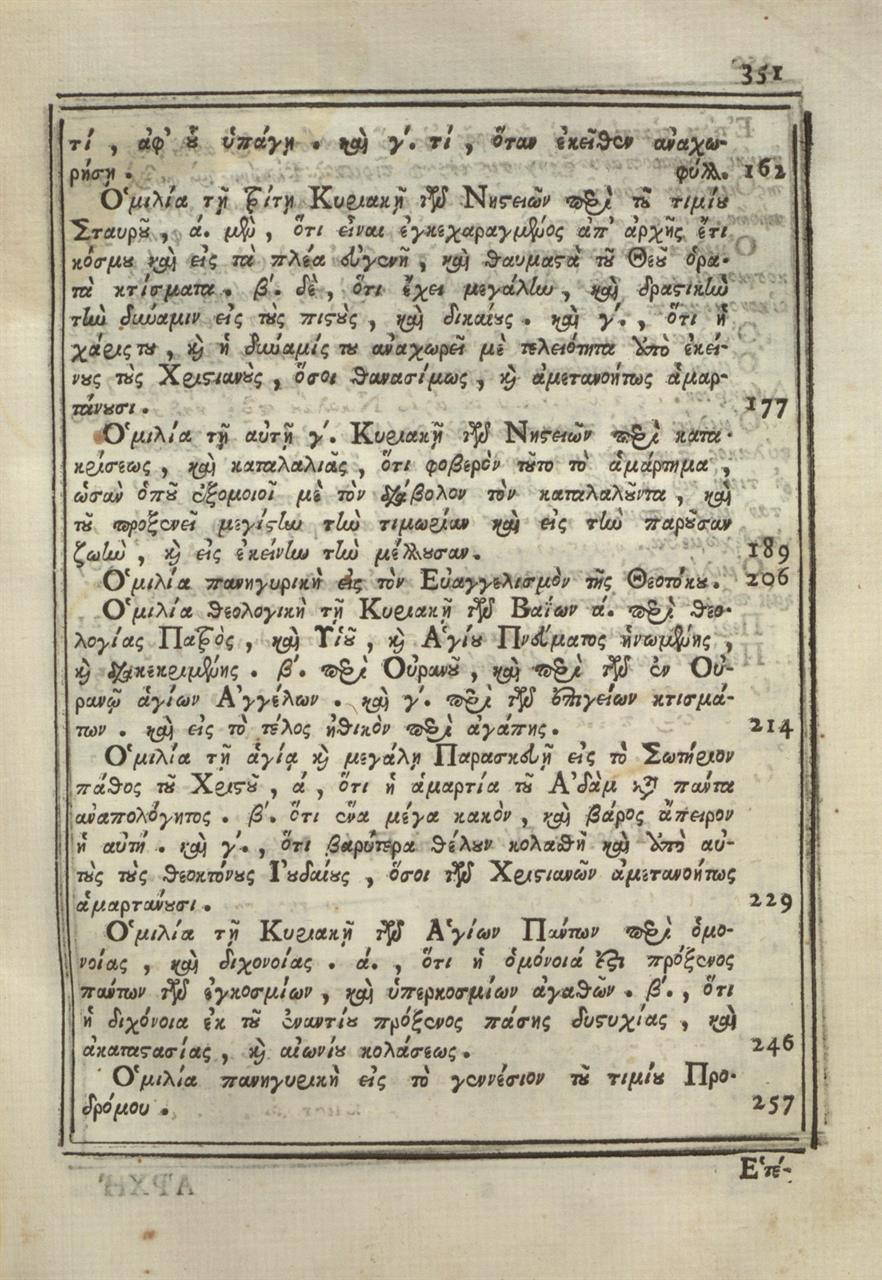 351
τί , ἀφ' οὗ ὑπάγῃ . καὶ γ΄. τί , ὅταν ἐκεῖθεν ἀναχω-
ρήσῃ . φύλλ. 162
Ὁμιλία τῇ τρίτῃ Κυριακῇ τῶν Νηστειῶν περὶ τοῦ τιμίου
Σταυροῦ , ά. μὲν , ὅτι εἶναι ἐγκεχαραγμένος ἀπ' ἀρχῆς ἔτι
κόσμου καὶ εἰς τὰ πλέα εὐγενῆ , καὶ θαυμαστὰ τοῦ Θεοῦ ὁρα-
τὰ κτίσματα . β΄. δὲ , ὅτι ἔχει μεγάλην , καὶ δραστικὴν
τὴν δύναμιν εἰς τοὺς πιστοὺς , καὶ δικαίους . καὶ γ΄. , ὅτι ἡ
χάρις του , καὶ ἡ δύναμίς του ἀναχωρεῖ μὲ τελειότητα ἀπὸ ἐκεί-
νους τοὺς Χριστιανοὺς , ὅσοι θανασίμως , καὶ ἀμετανοήτως ἁμαρ-
τάνουσι . 177
Ὁμιλία τῇ αὐτῇ γ΄. Κυριακῇ τῶν Νηστειῶν περὶ κατα-
κρίσεως , καὶ καταλαλιᾶς , ὅτι φοβερὸν τοῦτο τὸ ἁμάρτημα ,
ὡσὰν ὁποῦ ἐξομοιοῖ μὲ τὸν διάβολον τὸν καταλαλοῦντα , καὶ
τοῦ προξενεῖ μεγίστην τὴν τιμωρίαν καὶ εἰς τὴν παροῦσαν
ζωὴν , καὶ εἰς ἐκείνην τὴν μέλλουσαν . 189
Ὁμιλία πανηγυρικὴ εἰς τὸν Εὐαγγελισμὸν τῆς Θεοτόκου . 206
Ὁμιλία θεολογικὴ τῇ Κυριακῇ τῶν Βαΐων ά. περὶ θεο-
λογίας Πατρὸς , καὶ Υἱοῦ , καὶ Ἁγίου Πνεύματος ἡνωμένης ,
καὶ διακεκριμένης . β΄. περὶ Οὐρανοῦ , καὶ περὶ τῶν ἐν Οὐ-
ρανῷ ἁγίων Ἀγγέλων . καὶ γ΄. περὶ τῶν ἐπιγείων κτισμά-
των . καὶ εἰς τὸ τέλος ἠθικὸν περὶ ἀγάπης . 214
Ὁμιλία τῇ ἁγίᾳ καὶ μεγάλῃ Παρασκευῇ εἰς τὸ Σωτήριον
πάθος τοῦ Χριστοῦ , ά , ὅτι ἡ ἁμαρτία τοῦ Ἀδὰμ κατὰ πάντα
ἀναπολόγητος . β΄. ὅτι ἕνα μέγα κακὸν , καὶ βάρος ἄπειρον
ἡ αὐτή . καὶ γ΄. , ὅτι βαρύτερα θέλουν κολασθῆ καὶ ἀπὸ αὐ-
τοὺς τοὺς θεοκτόνους Ἰουδαίους , ὅσοι τῶν Χριστιανῶν ἀμετανοήτως
ἁμαρτάνουσι . 229
Ὁμιλία τῇ Κυριακῇ τῶν Ἁγίων Πάντων περὶ ὁμο-
νοίας , καὶ διχονοίας . ά. , ὅτι ἡ ὁμόνοιά ἐστι πρόξενος
πάντων τῶν ἐγκοσμίων , καὶ ὑπερκοσμίων ἀγαθῶν . β΄. , ὅτι
ἡ διχόνοια ἐκ τοῦ ἐναντίου πρόξενος πάσης δυστυχίας , καὶ
ἀκαταστασίας , καὶ αἰωνίου κολάσεως . 246
Ὁμιλία πανηγυρικὴ εἰς τὸ γεννέσιον τοῦ τιμίου Προ-
δρόμου . 257
Ἑτέ-